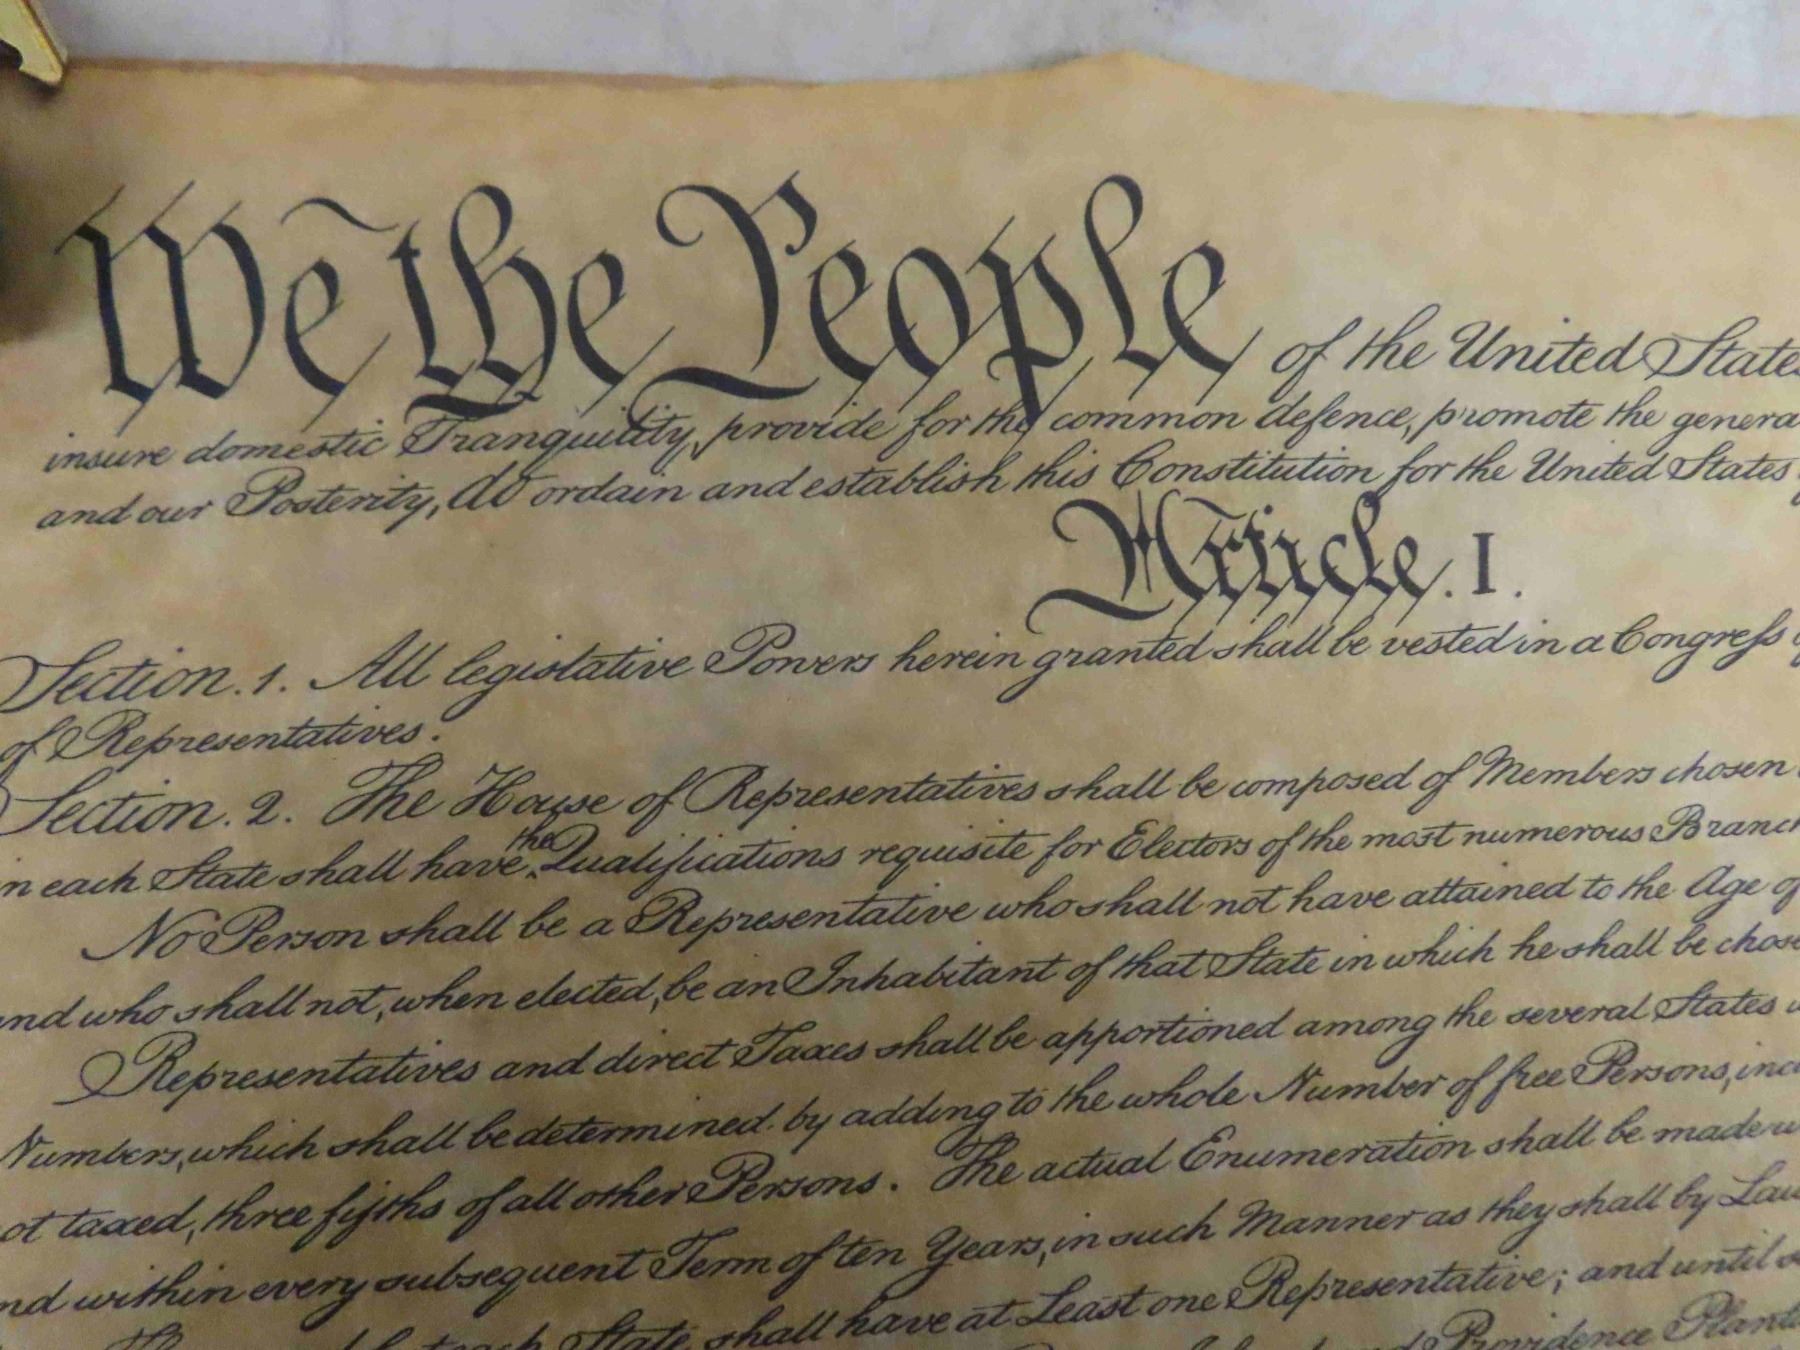 We the People of the United States
insure domestic Tranquility, provide for the common defence, promote the genera
and our Posterity, do ordain and establish this Constitution for the United States
Article. I.
Section. 1. All legislative Powers herein granted shall be vested in a Congress
of Representatives.
Section. 2. The House of Representatives shall be composed of Members chosen
the
in each State shall have Qualifications requisite for Electors of the most numerous Branch
No Person shall be a Representative who shall not have attained to the Age of
and who shall not, when elected, be an Inhabitant of that State in which he shall be chose
Representatives and direct Taxes shall be apportioned among the several States
Numbers, which shall be determined by adding to the whole Number of free Persons, inc
ot taxed, three fifths of all other Persons. The actual Enumeration shall be made
nd within every subsequent Term of ten Years, in such Manner as they shall by Law
each State shall have at Least one Representative; and until
and Providence Planta